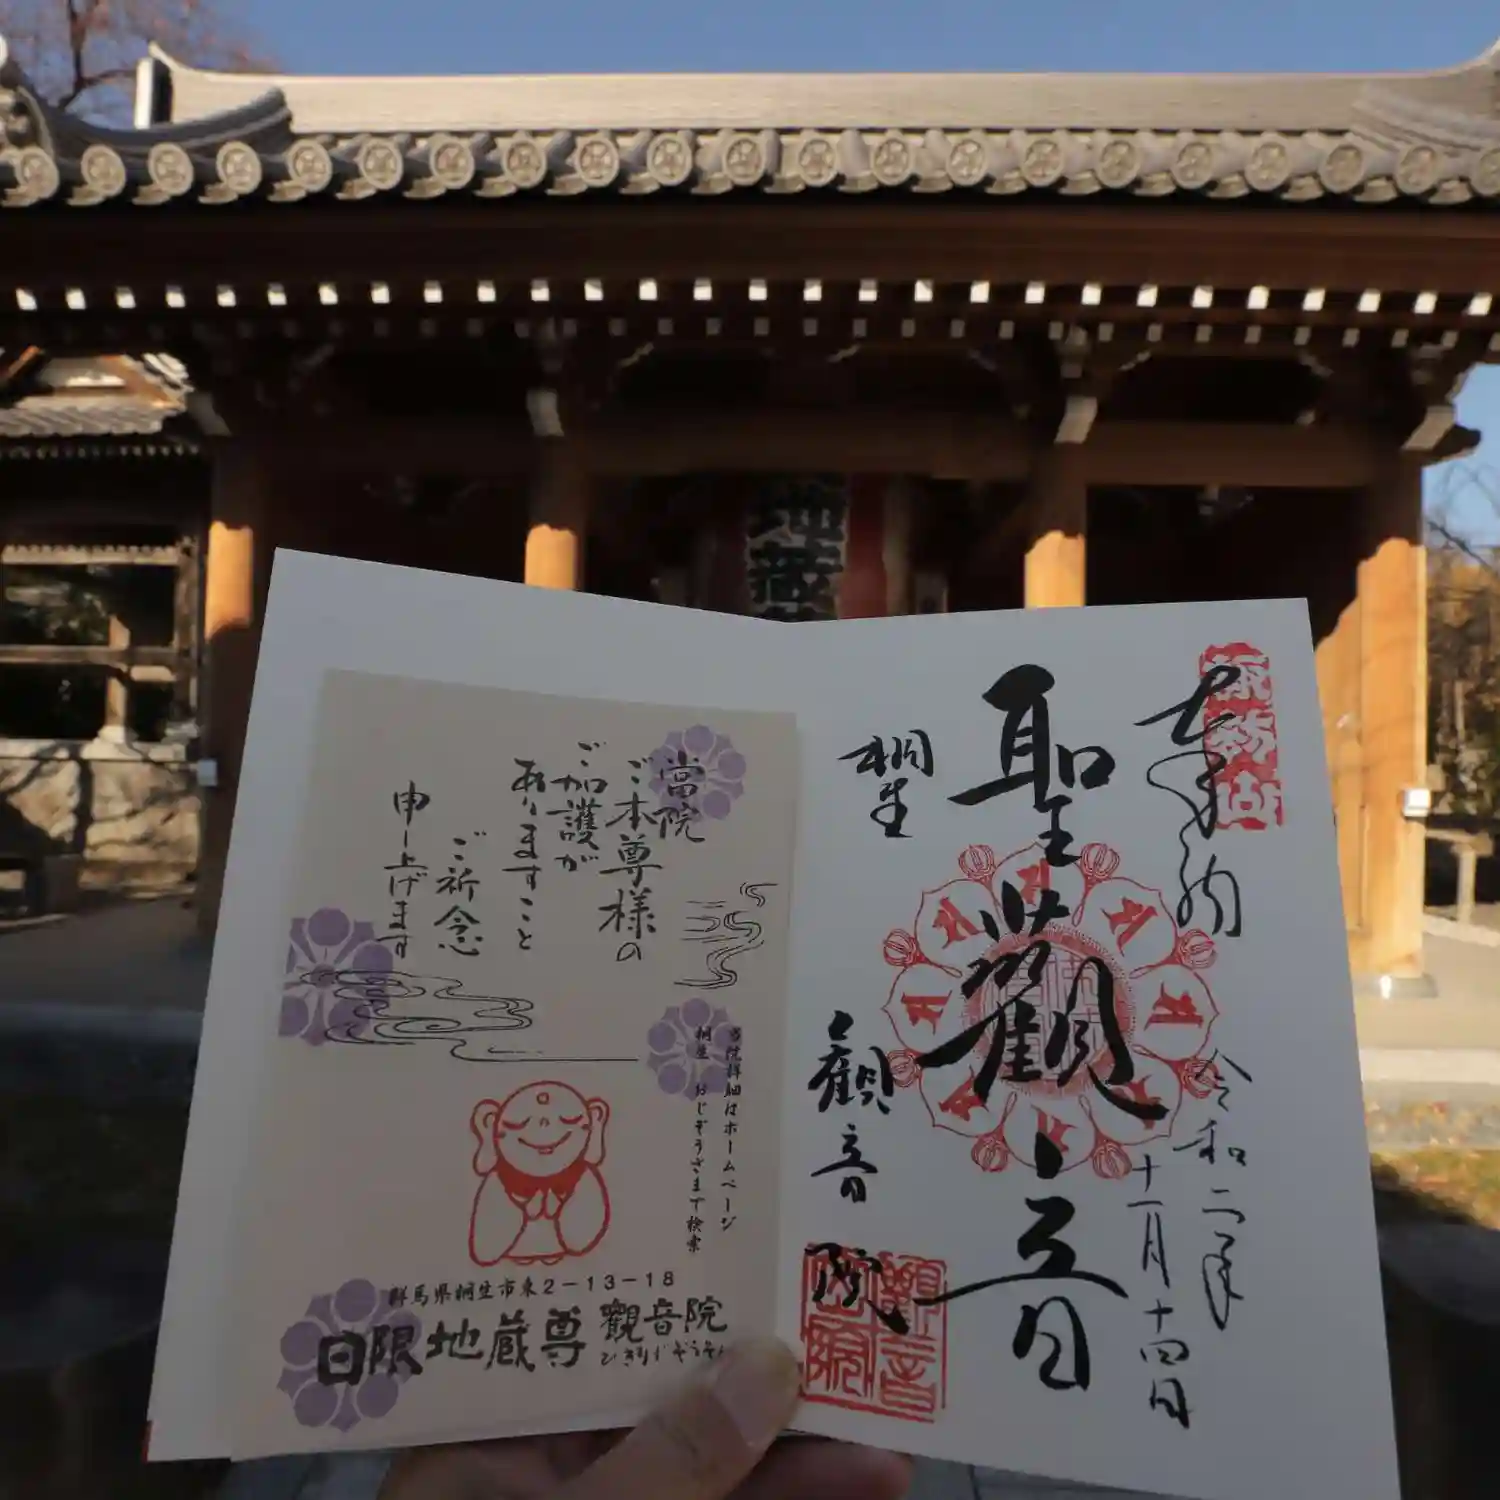 地蔵
奉納
聖観音
桐生
観音院
令和二年
十一月十四日
観音院
當院
ご本尊様の
ご加護が
ありますこと
ご祈念
申し上げます
当院詳細はホームページ
桐生 おじぞうさまで検索
群馬県桐生市東2-13-18
日限地蔵尊 觀音院
ひぎりじぞうそん